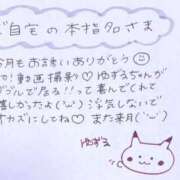 ご自宅の本指名さま
今月もお誘いありがとう
か！動画撮影♡ゆずるちゃんが
ダブルで居る!!って喜んでくれて
嬉しかったよ(‘ω’) 浮気しないで
オカズにしてね♡また来月(‘ω’)
ゆずる